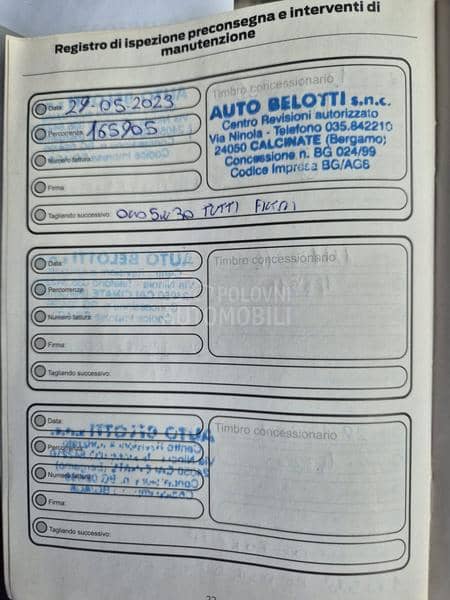 Registro di ispezione preconsegna e interventi di
manutenzione
Data: 29-05-2023
Percorrenza: 165905
Numero fattura:
Firma:
Tagliando successivo: OLIO 5W30 TUTTI FILTRI
Timbro concessionario
AUTO BELOTTI s.n.c.
Centro Revisioni autorizzato
Via Ninola - Telefono 035.842210
24050 CALCINATE (Bergamo)
Concessione n. BG 024/99
Codice Impresa BG/AG6
Data:
Percorrenza:
Numero fattura:
Firma:
Tagliando successivo:
Timbro concessionario
POLOVNI
AUTOMOBILI
Data:
Percorrenza:
Numero fattura:
Firma:
Tagliando successivo:
Timbro concessionario